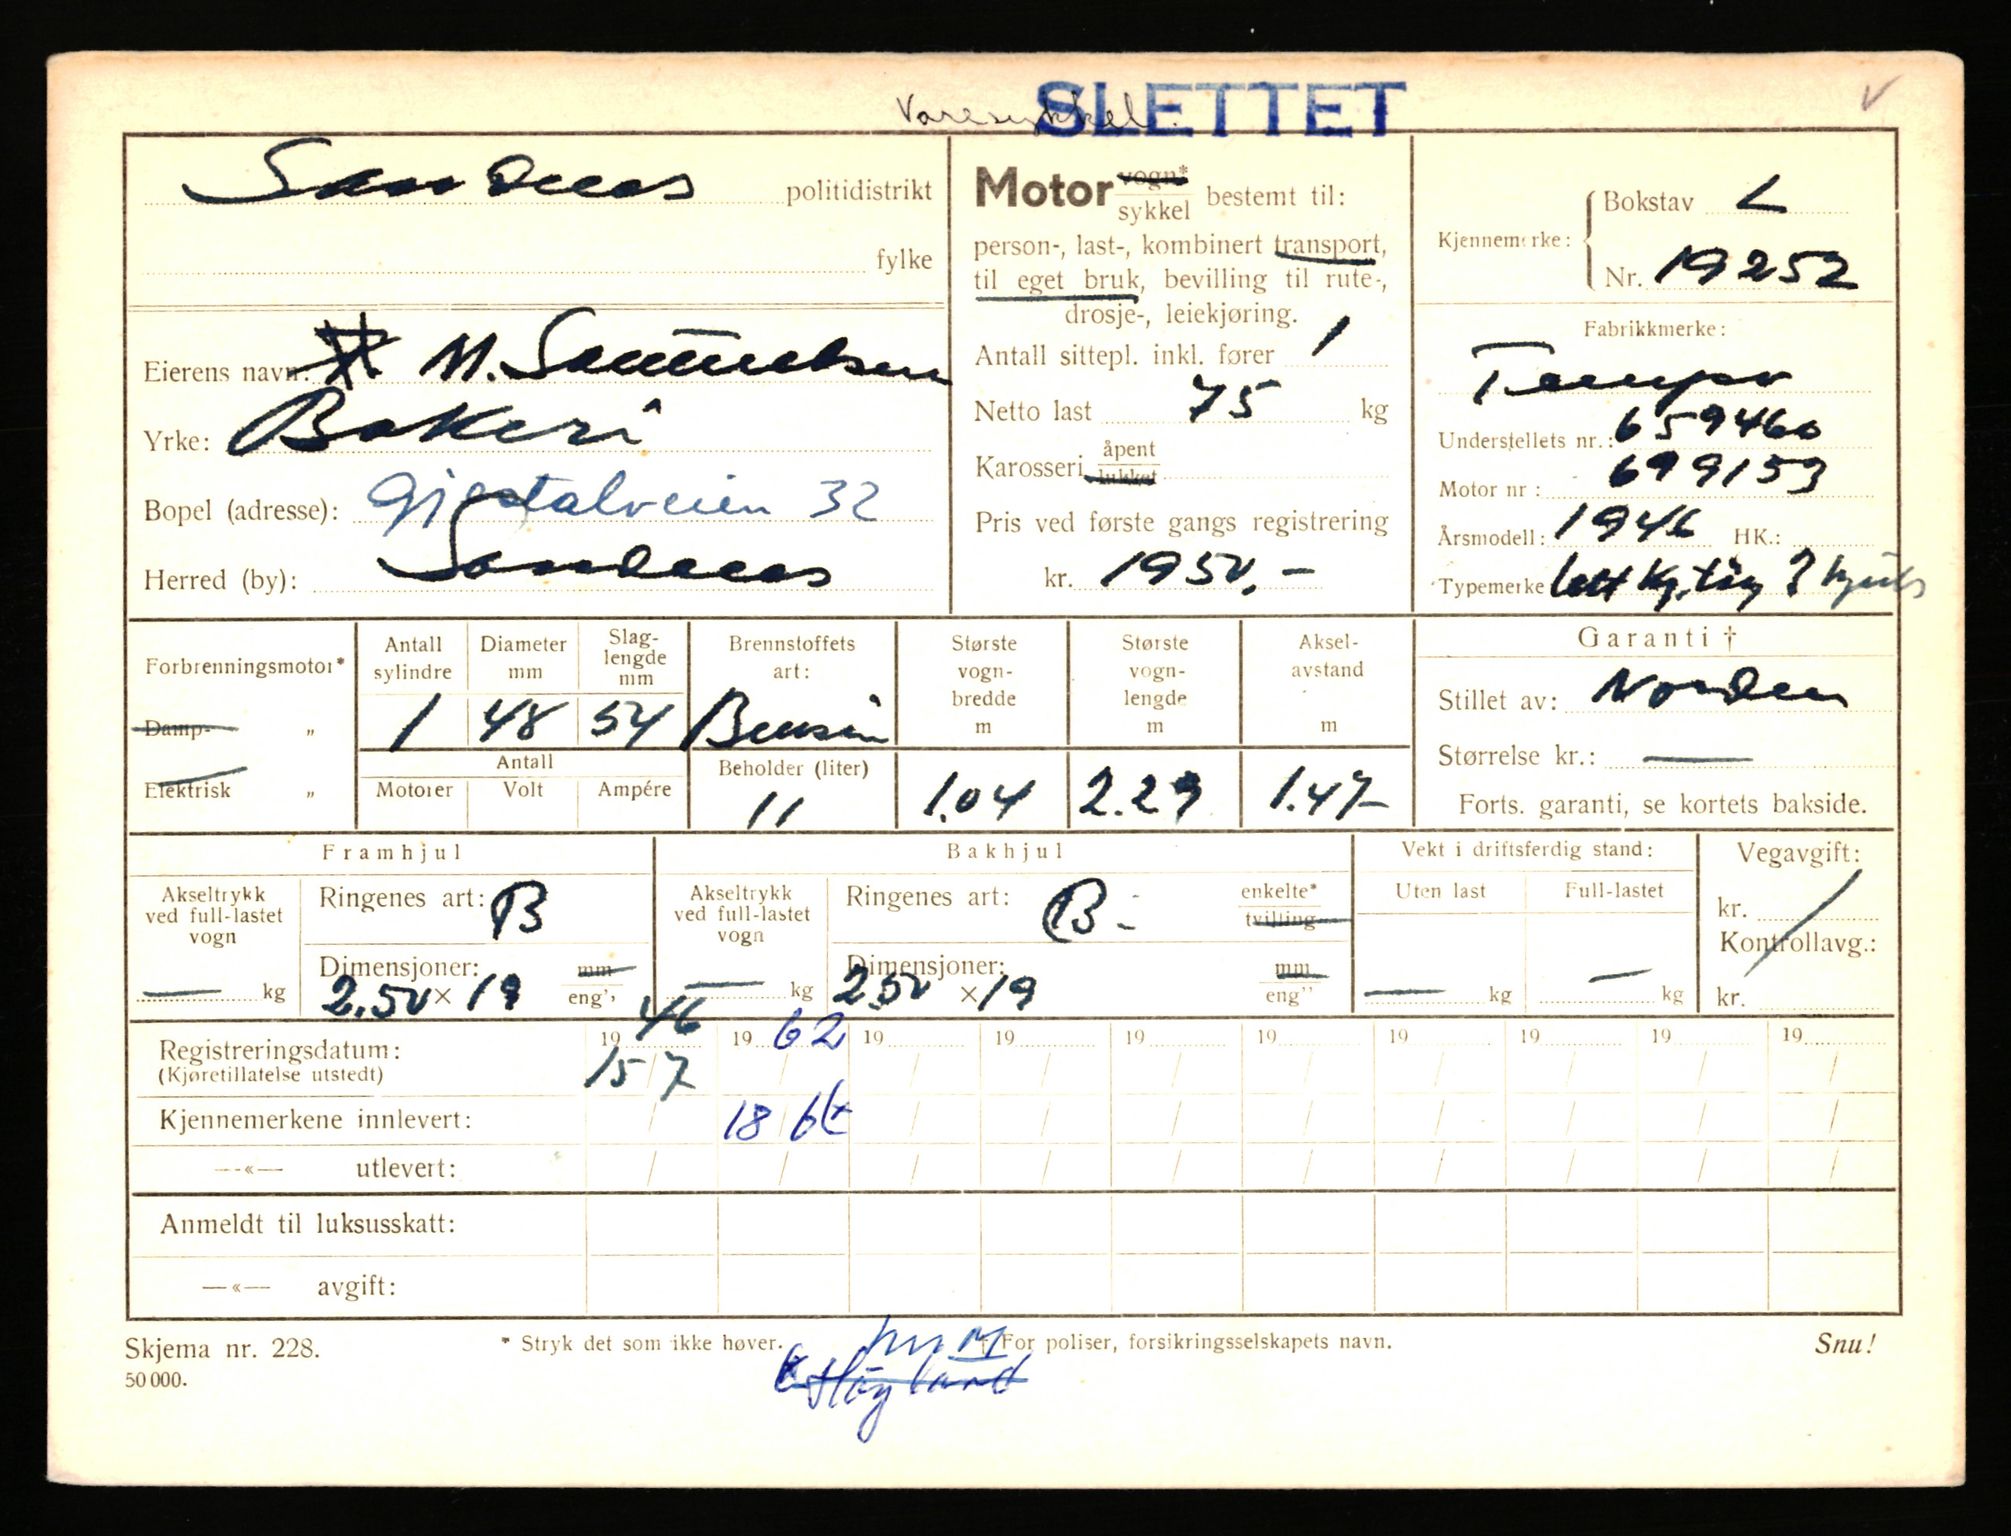 Varesykkel. SLETTET
Sandnes politidistrikt
fylke
Eierens navn: M. Samuelsen
Yrke: Bakeri
Bopel (adresse): Gjestalveien 32
Herred (by): Sandnes
Motor vogn* sykkel bestemt til:
person-, last-, kombinert transport,
til eget bruk, bevilling til rute-,
drosje-, leiekjøring.
Antall sittepl. inkl. fører 1
Netto last 75 kg
Karosseri åpent lukket
Pris ved første gangs registrering
kr. 1950,-
Kjennemerke: Bokstav L
Nr. 19252
Fabrikkmerke:
Tempo
Understellets nr.: 659460
Motor nr: 699153
Årsmodell: 1946 HK.:
Typemerke lett kj.tøy 3 hjuls
Forbrenningsmotor*
Damp- „
Elektrisk „
Antall sylindre 1
Diameter mm 48
Slag-lengde mm 54
Antall
Motorer Volt Ampére
Brennstoffets art: Bensin
Beholder (liter) 11
Største vogn-bredde m 1.04
Største vogn-lengde m 2.29
Aksel-avstand m 1.47
Garanti †
Stillet av: Norden
Størrelse kr.: —
Forts. garanti, se kortets bakside.
Framhjul
Akseltrykk ved full-lastet vogn — kg
Ringenes art: B
Dimensjoner: mm
2.50 × 19 eng''
Bakhjul
Akseltrykk ved full-lastet vogn — kg
Ringenes art: B- enkelte* tvilling
Dimensjoner: mm
2.50 × 19 eng''
Vekt i driftsferdig stand:
Uten last Full-lastet
— kg — kg
Vegavgift:
kr.
Kontrollavg.:
kr.
Registreringsdatum: 1946 1962 19 19 19 19 19 19 19 19
(Kjøretillatelse utstedt) 15/7
Kjennemerkene innlevert: 18/6
—«— utlevert:
Anmeldt til luksusskatt:
—«— avgift:
Skjema nr. 228. * Stryk det som ikke høver. † For poliser, forsikringsselskapets navn. Snu!
50 000. Høgland